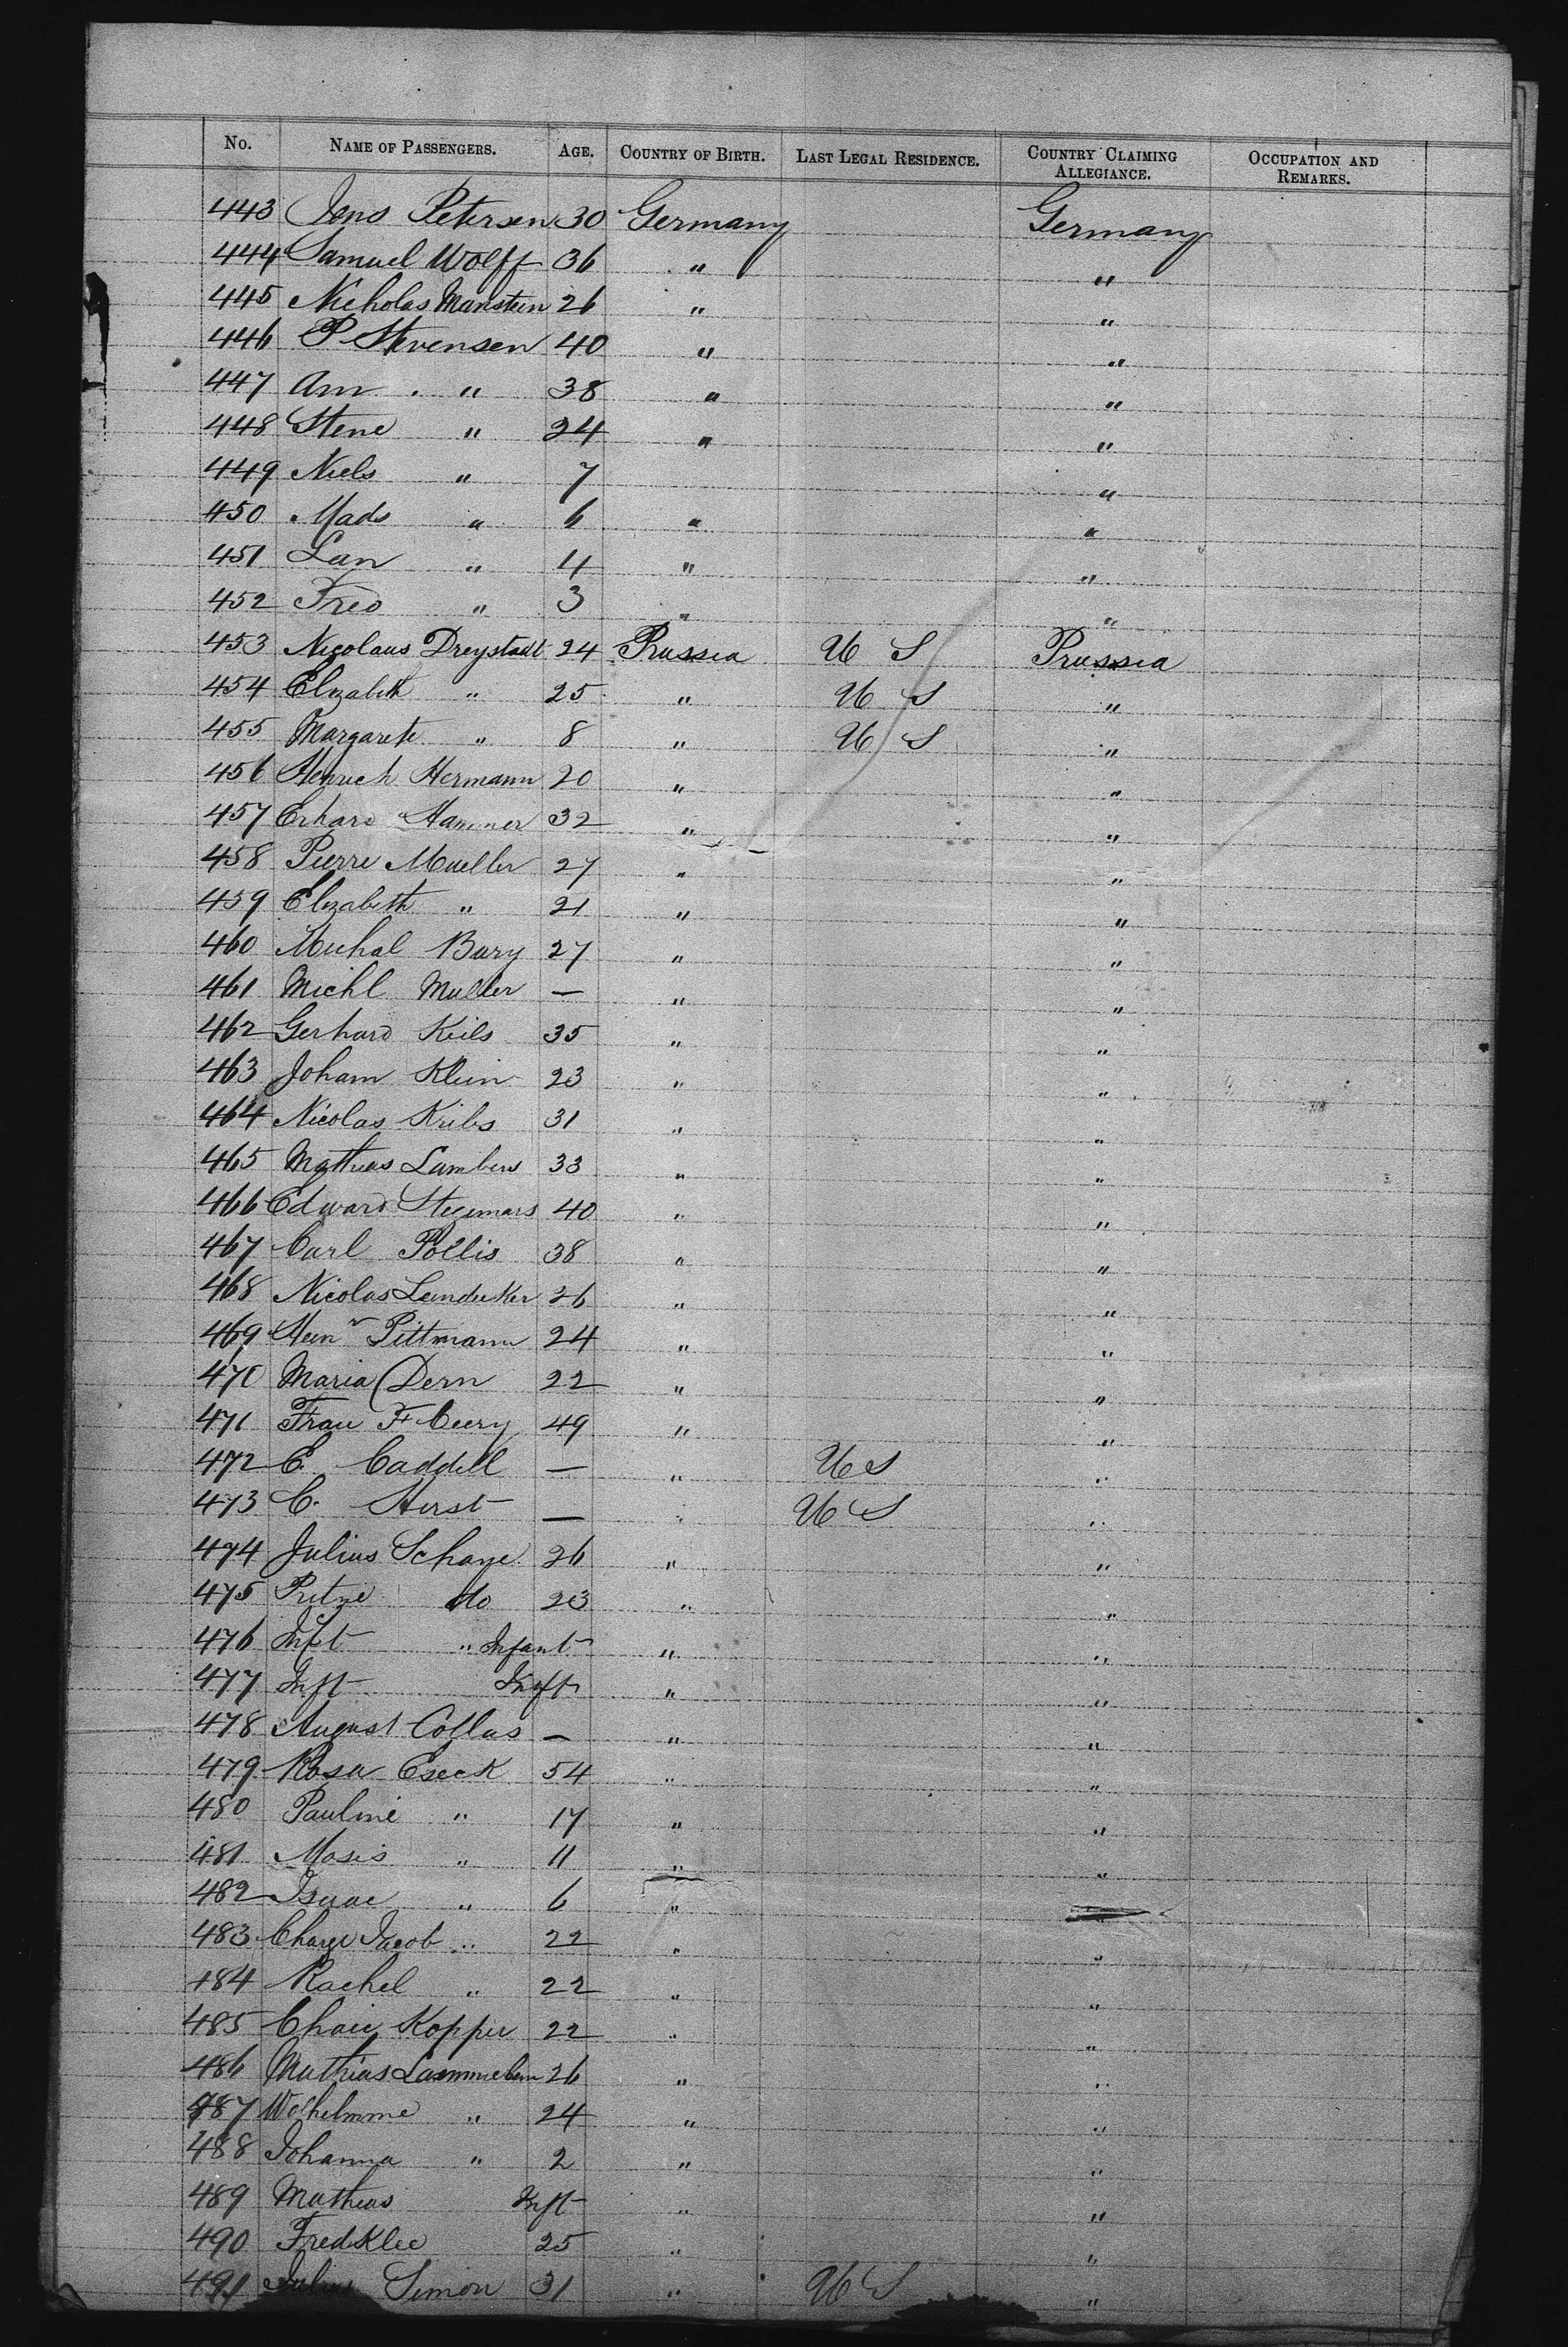 No. NAME OF PASSENGERS. AGE. COUNTRY OF BIRTH. LAST LEGAL RESIDENCE. COUNTRY CLAIMING ALLEGIANCE. OCCUPATION AND REMARKS.
443 Jens Petersen 30 Germany Germany
444 Samuel Wolff 36 " "
445 Nicholas Manstein 26 " "
446 P Stevensen 40 " "
447 Ann " 38 " "
448 Stene " 24 " "
449 Niels " 7 "
450 Mads " 6 " "
451 Lan " 4 " "
452 Fred " 3 " "
453 Nicolaus Dreystadt 24 Prussia U S Prussia
454 Elizabeth " 25 " U S "
455 Margarete " 8 " U S "
456 Henrich Hermann 20 " "
457 Erhard Hammer 32 " "
458 Pierre Mueller 27 " "
459 Elizabeth " 21 " "
460 Michal Bury 27 " "
461 Michl Muller — " "
462 Gerhard Keils 35 " "
463 Johann Klein 23 " "
464 Nicolas Kribs 31 " "
465 Mathias Lambers 33 " "
466 Edward Stegimars 40 " "
467 Carl Pollis 38 " "
468 Nicolas Lendecker 26 " "
469 Hein Pittmann 24 " "
470 Maria Dern 22 " "
471 Frau F 49 " "
472 E Caddell — " U S "
473 C. Hirst — " U S "
474 Julius Schaye 26 " "
475 do 23 " "
476 Inft " Infant " "
477 Inft Inft " "
478 August Collas — " "
479 Rosa Eseck 54 " "
480 Pauline " 17 " "
481 Mosis " 11 " "
482 Isaac " 6 " "
483 Jacob " 22 " "
484 Rachel " 22 " "
485 Kopper 22 " "
486 Mathias 26 " "
487 Wilhelmine " 24 " "
488 Johanna " 2 " "
489 Mathias Inft " "
490 Fred Klee 25 " "
491 Julius Simon 31 " U S "